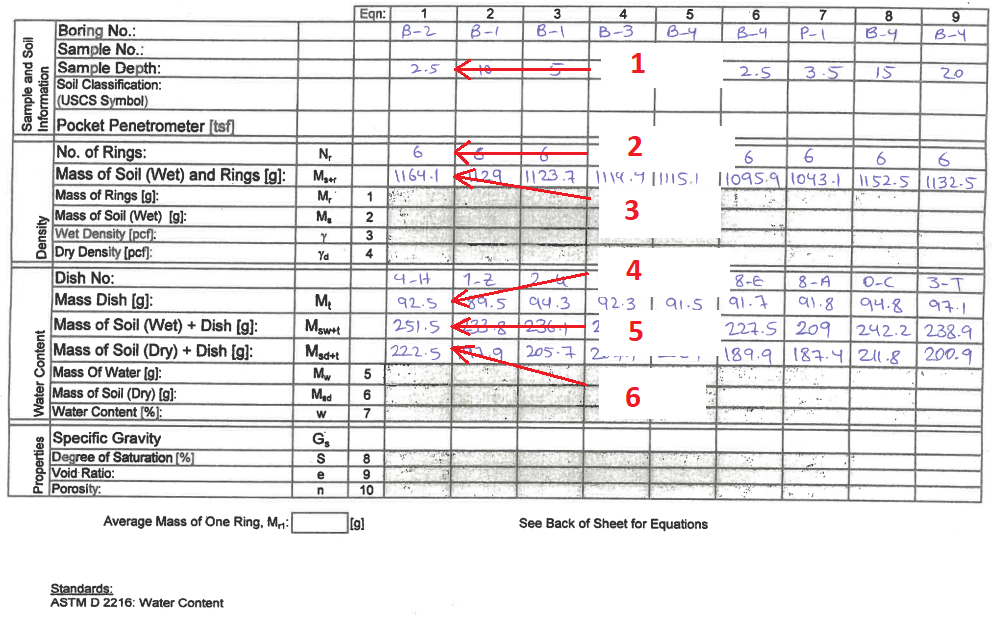 Eqn: 1 2 3 4 5 6 7 8 9
Sample and Soil Information
Boring No.: B-2 B-1 B-1 B-3 B-4 B-4 P-1 B-4 B-4
Sample No.:
Sample Depth: 2.5 10 5 2.5 3.5 15 20
1
Soil Classification:
(USCS Symbol)
Pocket Penetrometer [tsf]
Density
No. of Rings: Nr 6 6 6 6 6 6 6
2
Mass of Soil (Wet) and Rings [g]: Ms+r 1164.1 1129 1123.7 1114.4 1115.1 1095.9 1043.1 1152.5 1132.5
Mass of Rings [g]: Mr 1
3
Mass of Soil (Wet) [g]: Ms 2
Wet Density [pcf]: γ 3
Dry Density [pcf]: γd 4
Water Content
Dish No: 4-H 1-Z 8-E 8-A O-C 3-T
4
Mass Dish [g]: Mt 92.5 89.5 94.3 92.3 91.5 91.7 91.8 94.8 97.1
Mass of Soil (Wet) + Dish [g]: Msw+t 251.5 233.8 236.1 227.5 209 242.2 238.9
5
Mass of Soil (Dry) + Dish [g]: Msd+t 222.5 205.7 189.9 187.4 211.8 200.9
Mass Of Water [g]: Mw 5
Mass of Soil (Dry) [g]: Msd 6
6
Water Content [%]: w 7
Properties
Specific Gravity Gs
Degree of Saturation [%] S 8
Void Ratio: e 9
Porosity: n 10
Average Mass of One Ring, Mr1: [g]
See Back of Sheet for Equations
Standards:
ASTM D 2216: Water Content